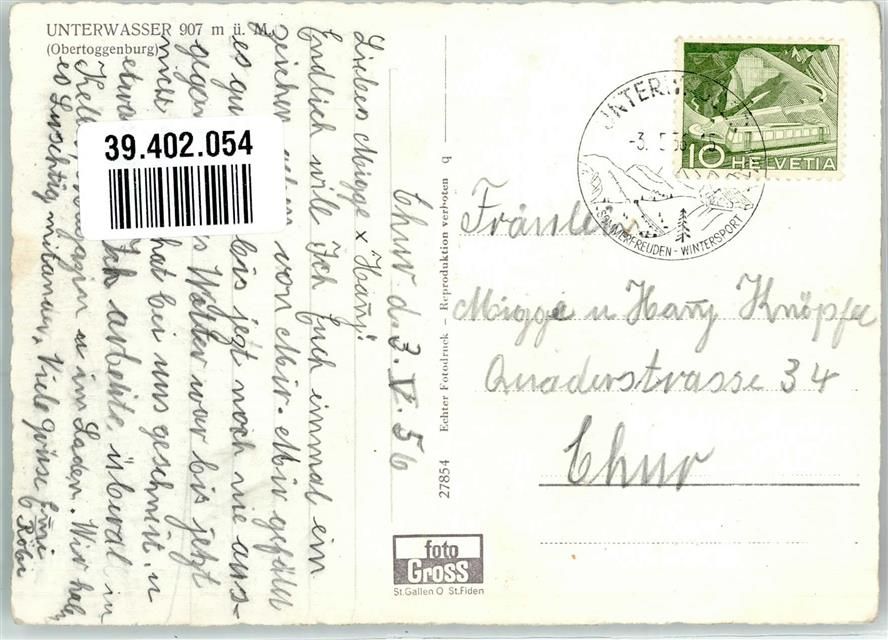 UNTERWASSER 907 m ü. M.
(Obertoggenburg)
39.402.054
Chur. d. 3. V. 56
Liebes Migge x Hanny!
Endlich will Ich Euch einmal ein
Zeichen geben von Mir. Mir gefällt
es gu bis jezt noch nie aus-
gegan s Wätter war bis jetzt
nicht hat bei uns geschneit. u
etwa Ich arbeite überal in
Kell Magazin u im Laden. Wir haben
es Luschtig mitanander. Viele Grüsse Euri
Röbi
27854 Echter Fotodruck – Reproduktion verboten q
foto
Gross
St.Gallen O St.Fiden
UNTERWASSER
-3. 5.56 -15
SOMMERFREUDEN - WINTERSPORT
10 HELVETIA
Fräulein
Migge u Hanny Knöpfel
Quaderstrasse 34
Chur